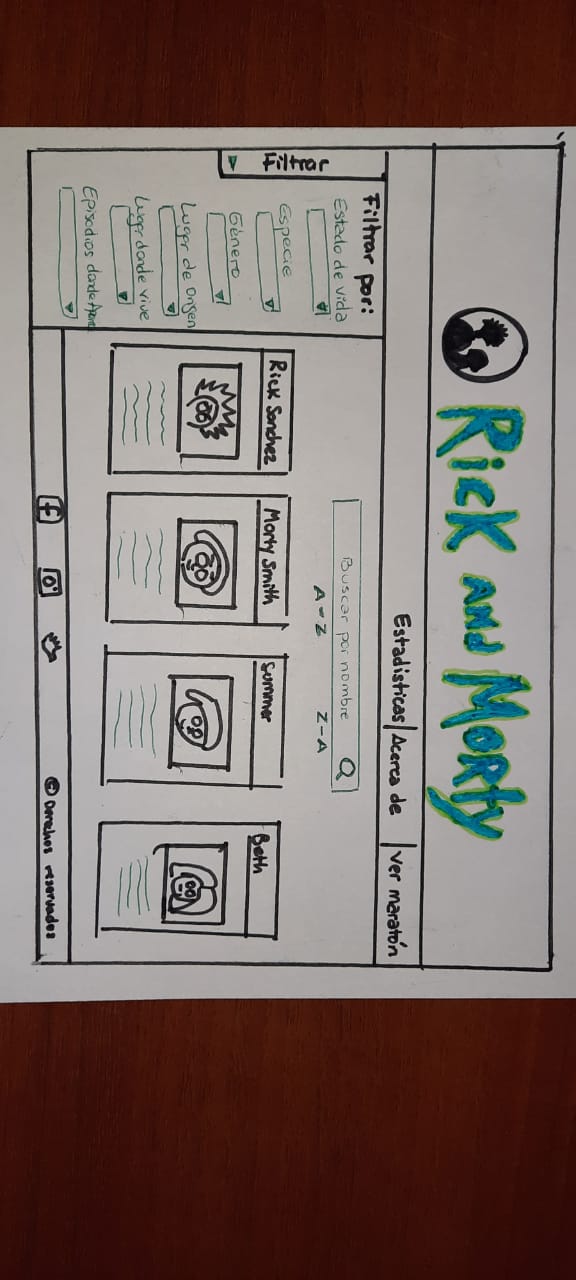 Rick AND Morty
Estadísticas | Acerca de | Ver maratón
Filtrar
Filtrar por:
Estado de vida
Especie
Género
Lugar de Origen
Lugar donde vive
Episodios donde
Buscar por nombre
A-Z
Z-A
Rick Sanchez
Morty Smith
Summer
Beth
© Derechos reservados